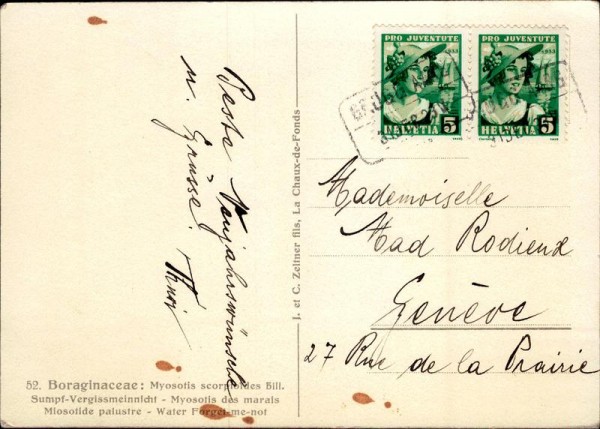 Beste Neujahrswünsche
u. Grüsse.
52. Boraginaceae: Myosotis scorpioides Hill.
Sumpf-Vergissmeinnicht - Myosotis des marais
Miosotide palustre - Water Forget-me-not
J. et C. Zeltner fils, La Chaux-de-Fonds
PRO JUVENTUTE
1933
HELVETIA 5
PRO JUVENTUTE
1933
HELVETIA 5
Mademoiselle
Mad Rodieux
Genève
27 Rue de la Prairie